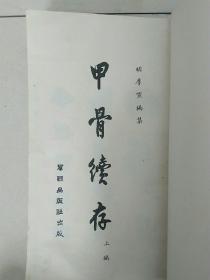 胡厚宣編集
甲骨續存
上編
羣聯出版社出版